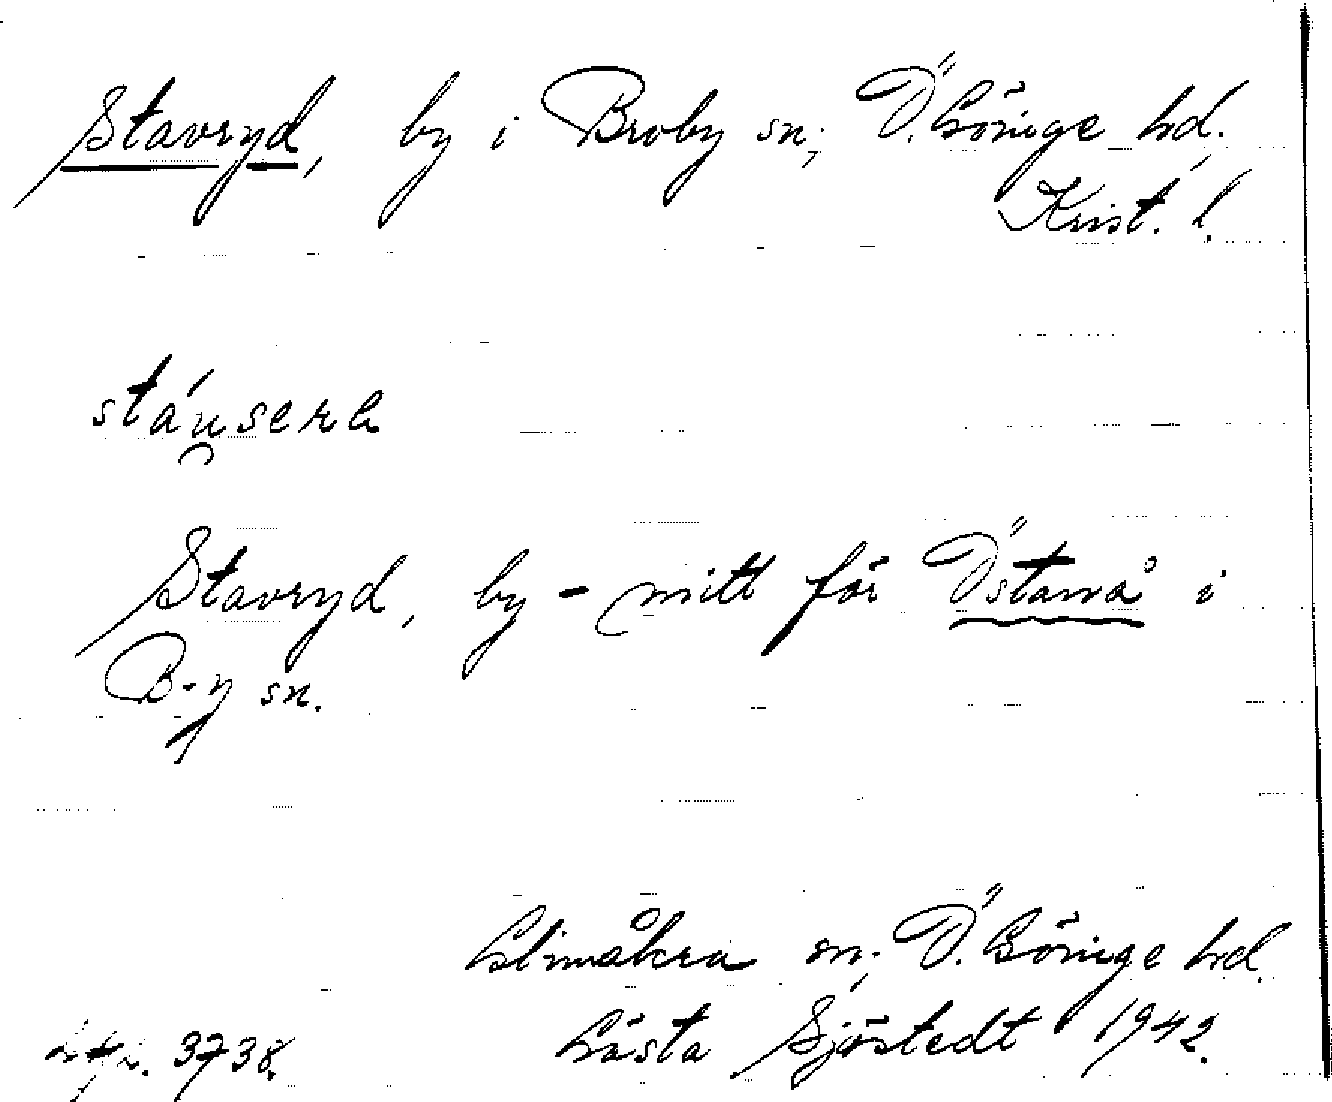 Stavryd, by i Broby sn, Ö. Göinge hd.
Krist. l.
Stavryd, by - mitt för Östanå i
B-y sn.
Glimåkra sn, Ö. Göinge hd.
Gösta Sjöstedt 1942.
3738.